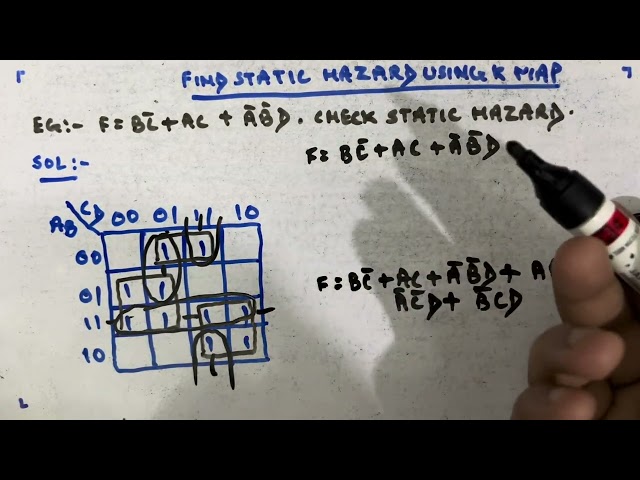 FIND STATIC HAZARD USING K MAP
EG:- F = BC̄ + AC + ĀB̄D. CHECK STATIC HAZARD.
SOL:-
F = BC̄ + AC + ĀB̄D
CD
AB
00 01 11 10
00 1 1
01 1 1
11 1 1 1 1
10 1 1
F = BC̄ + AC + ĀB̄D +
ĀC̄D + B̄CD